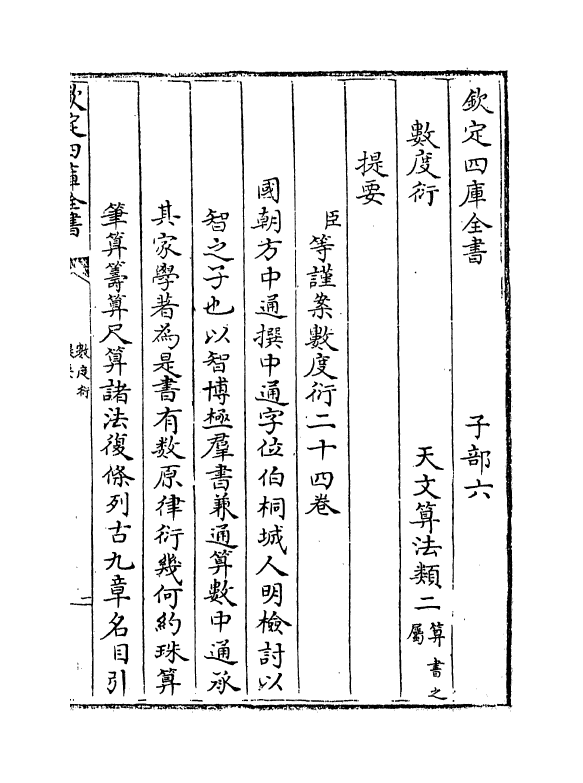 欽定四庫全書 子部六
數度衍 天文算法類二 算書之屬
提要
臣等謹案數度衍二十四卷
國朝方中通撰中通字位伯桐城人明檢討以
智之子也以智博極羣書兼通算數中通承
其家學著為是書有数原律衍幾何約珠算
筆算籌算尺算諸法復條列古九章名目引
欽定四庫全書
數度衍